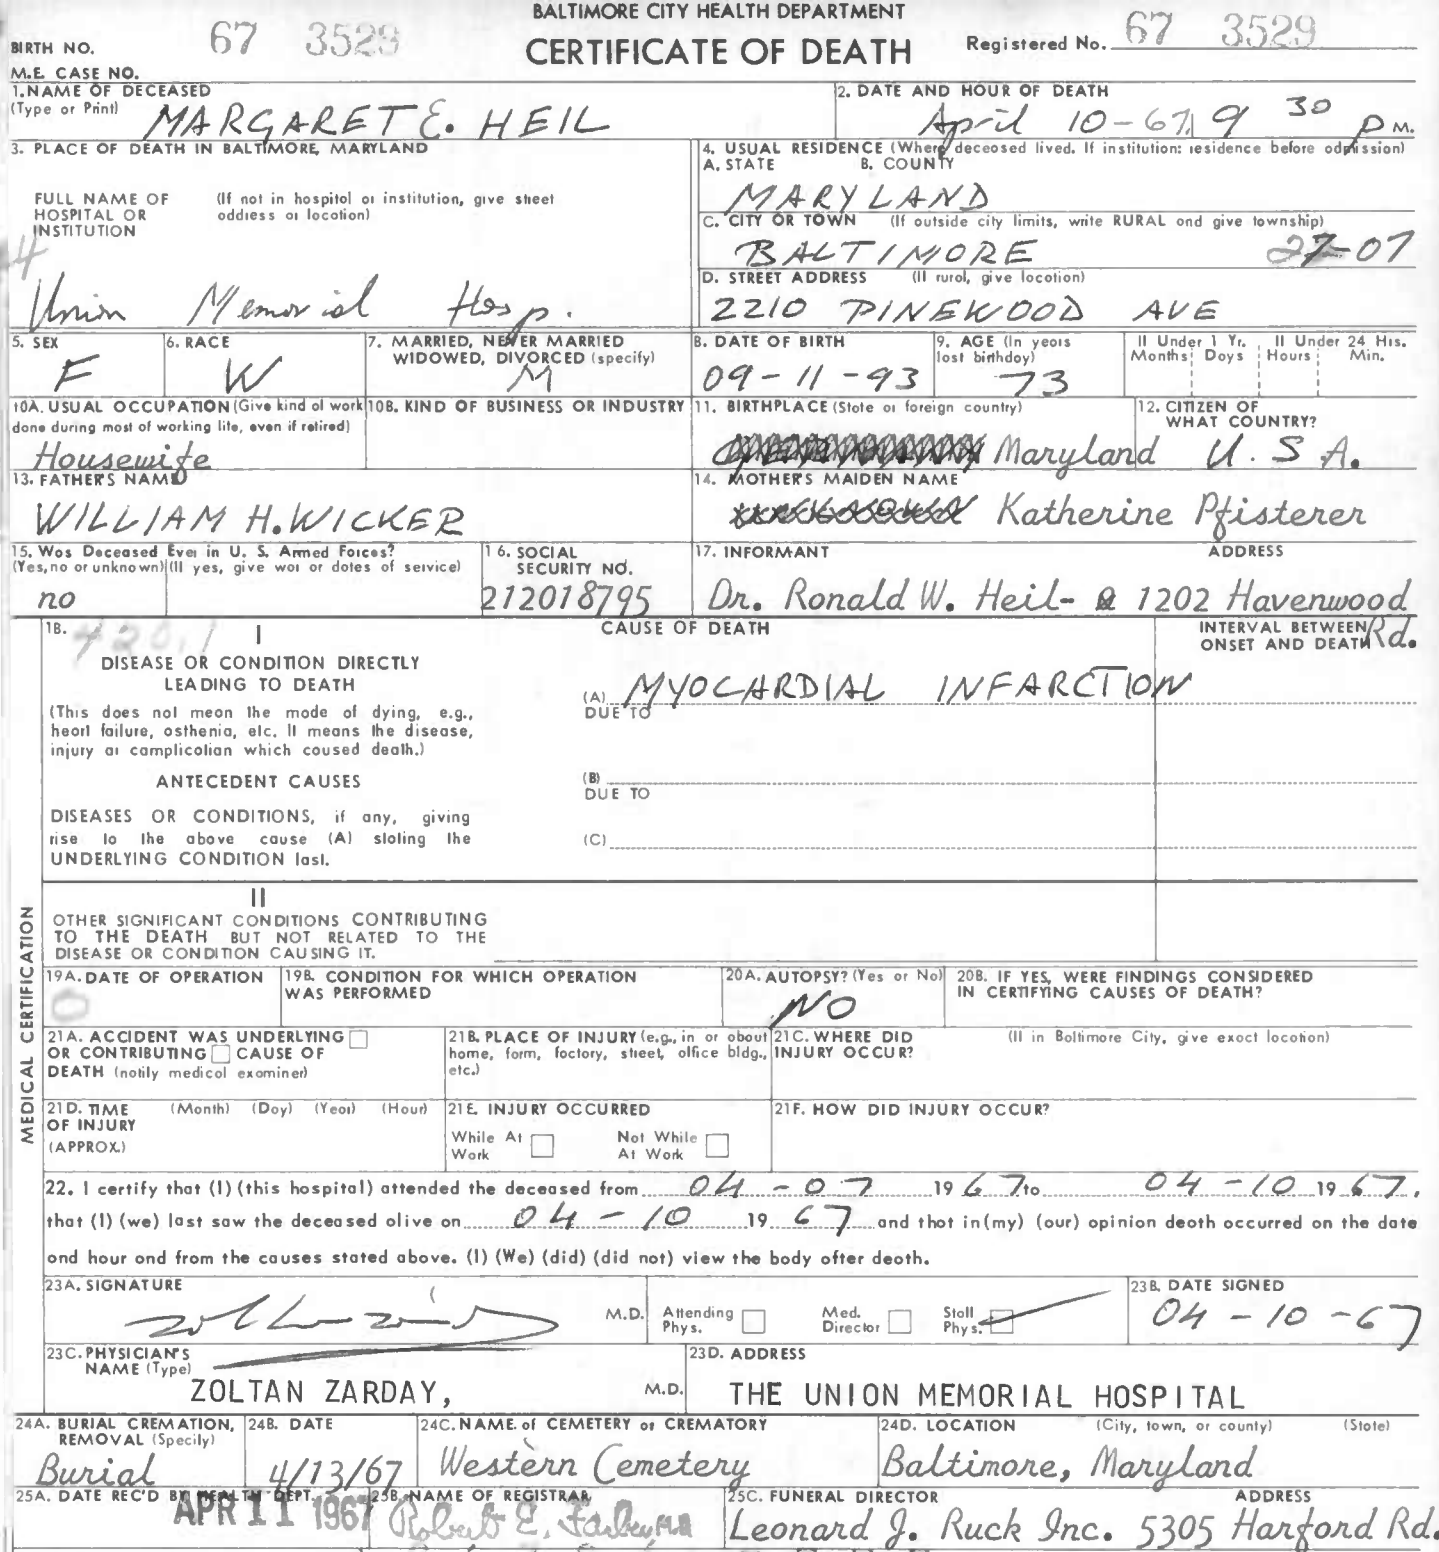 BALTIMORE CITY HEALTH DEPARTMENT
CERTIFICATE OF DEATH
BIRTH NO. 67 3529
Registered No. 67 3529
M.E. CASE NO.
1. NAME OF DECEASED
(Type or Print) MARGARET E. HEIL
2. DATE AND HOUR OF DEATH
April 10-67 9 30 P M.
3. PLACE OF DEATH IN BALTIMORE, MARYLAND
FULL NAME OF HOSPITAL OR INSTITUTION
(If not in hospital or institution, give street address or location)
4
Union Memorial Hosp.
4. USUAL RESIDENCE (Where deceased lived. If institution: residence before admission)
A. STATE B. COUNTY
MARYLAND
C. CITY OR TOWN (If outside city limits, write RURAL and give township)
BALTIMORE 27-07
D. STREET ADDRESS (If rural, give location)
2210 PINEWOOD AVE
5. SEX
F
6. RACE
W
7. MARRIED, NEVER MARRIED
WIDOWED, DIVORCED (specify)
M
8. DATE OF BIRTH
09-11-93
9. AGE (In years
last birthday)
73
If Under 1 Yr. If Under 24 Hrs.
Months Days Hours Min.
10A. USUAL OCCUPATION (Give kind of work
done during most of working life, even if retired)
Housewife
10B. KIND OF BUSINESS OR INDUSTRY
11. BIRTHPLACE (State or foreign country)
Maryland
12. CITIZEN OF
WHAT COUNTRY?
U.S.A.
13. FATHER'S NAME
WILLIAM H. WICKER
14. MOTHER'S MAIDEN NAME
Katherine Pfisterer
15. Was Deceased Ever in U. S. Armed Forces?
(Yes, no or unknown) (If yes, give war or dates of service)
no
16. SOCIAL
SECURITY NO.
212018795
17. INFORMANT ADDRESS
Dr. Ronald W. Heil - 1202 Havenwood Rd.
18. 420.1
I
DISEASE OR CONDITION DIRECTLY
LEADING TO DEATH
(This does not mean the mode of dying, e.g.,
heart failure, osthenia, etc. It means the disease,
injury or complication which caused death.)
ANTECEDENT CAUSES
DISEASES OR CONDITIONS, if any, giving
rise to the above cause (A) stating the
UNDERLYING CONDITION last.
CAUSE OF DEATH
INTERVAL BETWEEN
ONSET AND DEATH
(A) MYOCARDIAL INFARCTION
DUE TO
(B)
DUE TO
(C)
II
OTHER SIGNIFICANT CONDITIONS CONTRIBUTING
TO THE DEATH BUT NOT RELATED TO THE
DISEASE OR CONDITION CAUSING IT.
MEDICAL CERTIFICATION
19A. DATE OF OPERATION
0
19B. CONDITION FOR WHICH OPERATION
WAS PERFORMED
20A. AUTOPSY? (Yes or No)
NO
20B. IF YES, WERE FINDINGS CONSIDERED
IN CERTIFYING CAUSES OF DEATH?
21A. ACCIDENT WAS UNDERLYING
OR CONTRIBUTING CAUSE OF
DEATH (notify medical examiner)
21B. PLACE OF INJURY (e.g., in or about
home, farm, factory, street, office bldg.,
etc.)
21C. WHERE DID (If in Baltimore City, give exact location)
INJURY OCCUR?
21D. TIME (Month) (Day) (Year) (Hour)
OF INJURY
(APPROX.)
21E. INJURY OCCURRED
While At Work Not While At Work
21F. HOW DID INJURY OCCUR?
22. I certify that (I) (this hospital) attended the deceased from 04-07 1967 to 04-10 1967,
that (I) (we) last saw the deceased alive on 04-10 1967 and that in (my) (our) opinion death occurred on the date
and hour and from the causes stated above. (I) (We) (did) (did not) view the body after death.
23A. SIGNATURE
M.D. Attending Phys. Med. Director Staff Phys.
23B. DATE SIGNED
04-10-67
23C. PHYSICIAN'S
NAME (Type)
ZOLTAN ZARDAY, M.D.
23D. ADDRESS
THE UNION MEMORIAL HOSPITAL
24A. BURIAL CREMATION,
REMOVAL (Specify)
Burial
24B. DATE
4/13/67
24C. NAME of CEMETERY or CREMATORY
Western Cemetery
24D. LOCATION (City, town, or county) (State)
Baltimore, Maryland
25A. DATE REC'D BY HEALTH DEPT.
APR 11 1967
25B. NAME OF REGISTRAR
Robert E. Farber, M.D.
25C. FUNERAL DIRECTOR ADDRESS
Leonard J. Ruck Inc. 5305 Harford Rd.